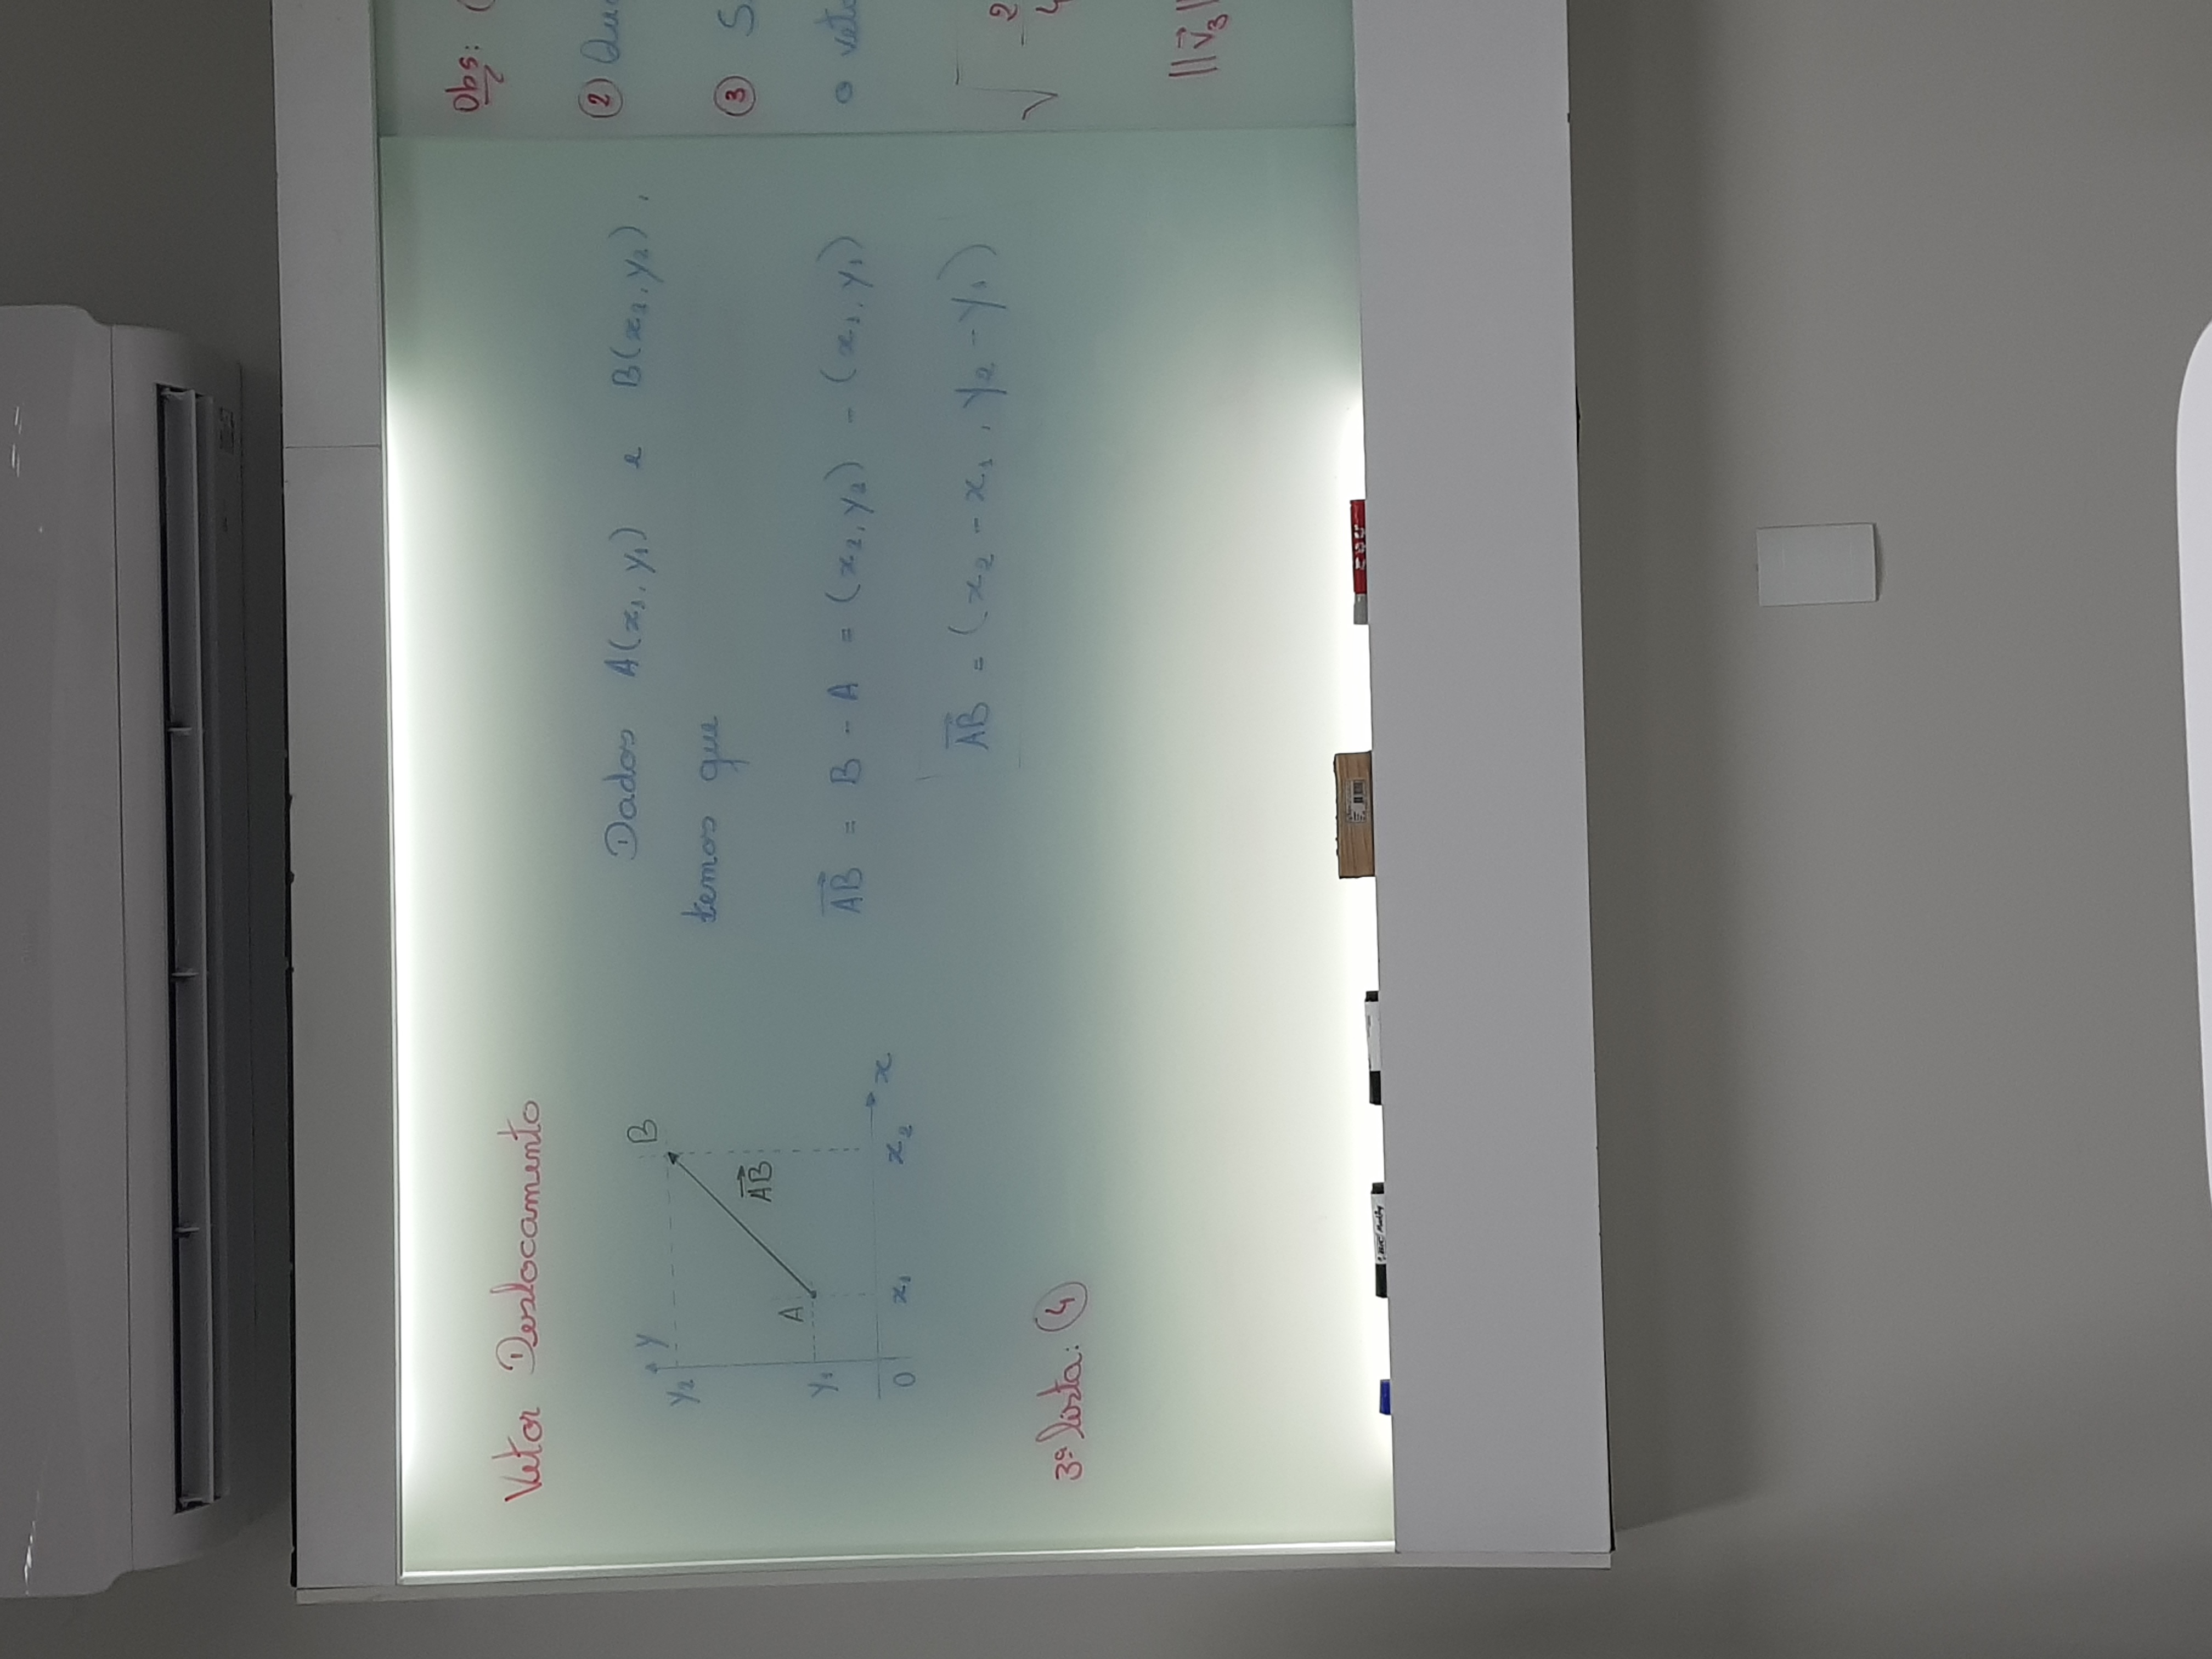 Vetor Deslocamento
y
y₂
B
AB⃗
A
y₁
0
x₁
x₂
x
Dados A(x₁, y₁) e B(x₂, y₂),
temos que
AB⃗ = B - A = (x₂, y₂) - (x₁, y₁)
AB⃗ = (x₂ - x₁, y₂ - y₁)
3ª lista: ④
Obs: (
②
③ S
o
√ 2
4
||v⃗₃|